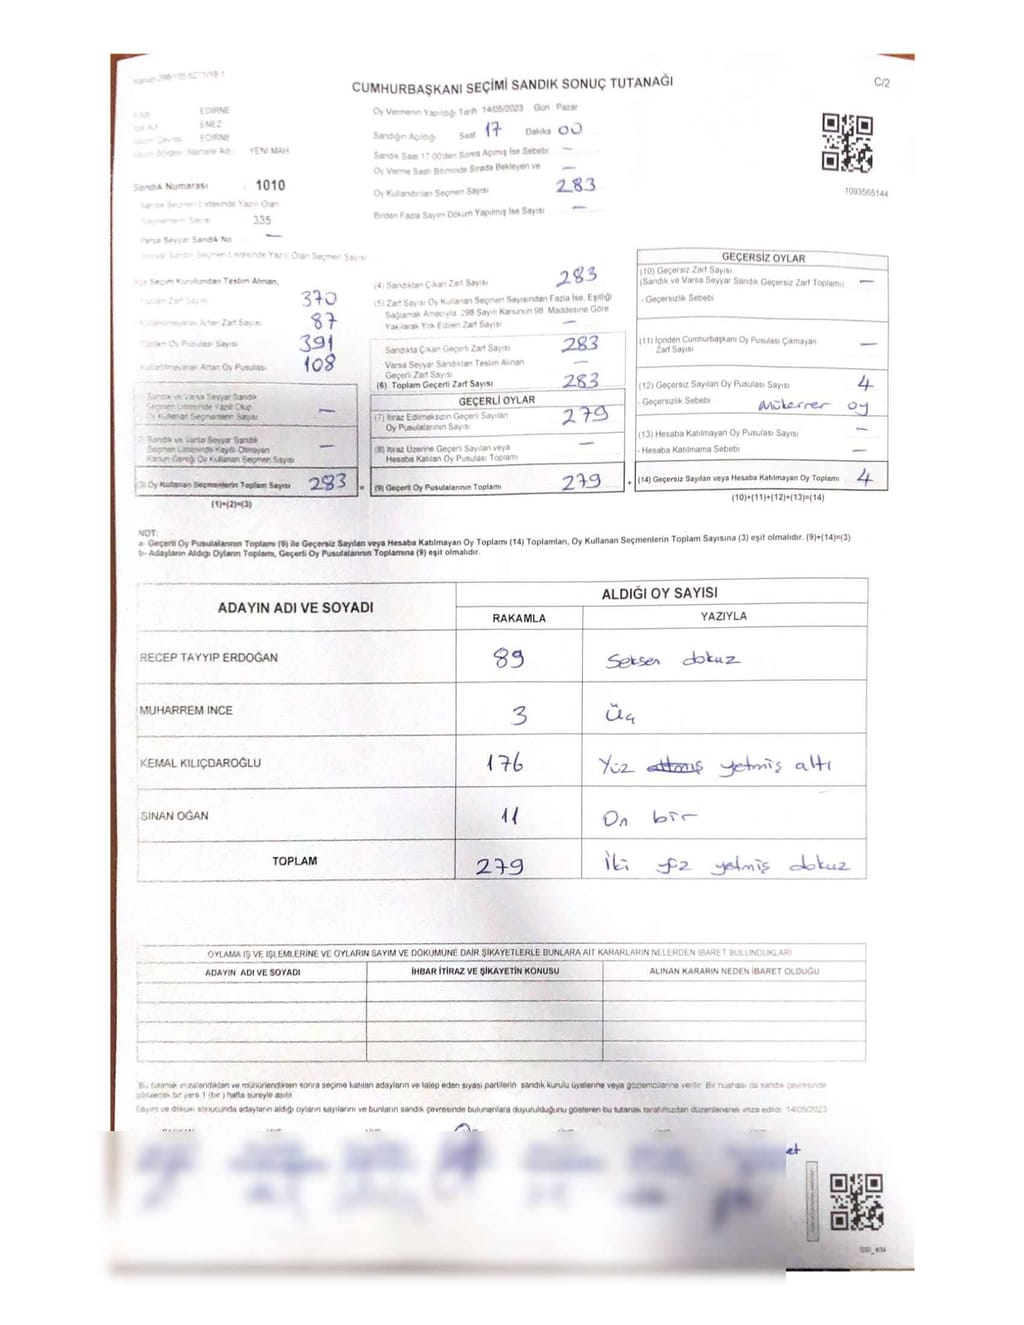 CUMHURBAŞKANI SEÇİMİ SANDIK SONUÇ TUTANAĞI
C/2
EDİRNE
ENEZ
EDİRNE
YENİ MAH
Sandık Numarası : 1010
Sandık Seçmen Listesinde Yazılı Olan
Seçmenlerin Sayısı : 335
Varsa Seyyar Sandık No : —
Seyyar Sandık Seçmen Listesinde Yazılı Olan Seçmen Sayısı
Oy Vermenin Yapıldığı Tarih 14/05/2023 Gün Pazar
Sandığın Açıldığı Saat 17 Dakika 00
Sandık Saat 17:00'den Sonra Açılmış İse Sebebi —
Oy Verme Saati Bitiminde Sırada Bekleyen ve —
Oy Kullandırılan Seçmen Sayısı 283
Birden Fazla Sayım Döküm Yapılmış İse Sayısı —
1093565144
İlçe Seçim Kurulundan Teslim Alınan,
Toplam Zarf Sayısı 370
Kullanılmayarak Artan Zarf Sayısı 87
Toplam Oy Pusulası Sayısı 391
Kullanılmayarak Artan Oy Pusulası 108
Sandık ve Varsa Seyyar Sandık
Seçmen Listesinde Yazılı Olup
Oy Kullanan Seçmenlerin Sayısı —
(2) Sandık ve Varsa Seyyar Sandık
Seçmen Listesinde Kaydı Olmayan
Kanun Gereği Oy Kullanan Seçmen Sayısı —
(3) Oy Kullanan Seçmenlerin Toplam Sayısı 283 =
(1)+(2)=(3)
(4) Sandıktan Çıkan Zarf Sayısı 283
(5) Zarf Sayısı Oy Kullanan Seçmen Sayısından Fazla İse, Eşitliği
Sağlamak Amacıyla, 298 Sayılı Kanunun 98. Maddesine Göre
Yakılarak Yok Edilen Zarf Sayısı —
Sandıkta Çıkan Geçerli Zarf Sayısı 283
Varsa Seyyar Sandıktan Teslim Alınan
Geçerli Zarf Sayısı —
(6) Toplam Geçerli Zarf Sayısı 283
GEÇERLİ OYLAR
(7) İtiraz Edilmeksizin Geçerli Sayılan
Oy Pusulalarının Sayısı 279
(8) İtiraz Üzerine Geçerli Sayılan veya
Hesaba Katılan Oy Pusulası Toplamı —
(9) Geçerli Oy Pusulalarının Toplamı 279 +
GEÇERSİZ OYLAR
(10) Geçersiz Zarf Sayısı
(Sandık ve Varsa Seyyar Sandık Geçersiz Zarf Toplamı) —
- Geçersizlik Sebebi
(11) İçinden Cumhurbaşkanı Oy Pusulası Çıkmayan
Zarf Sayısı —
(12) Geçersiz Sayılan Oy Pusulası Sayısı 4
- Geçersizlik Sebebi Mükerrer oy
(13) Hesaba Katılmayan Oy Pusulası Sayısı —
- Hesaba Katılmama Sebebi —
(14) Geçersiz Sayılan veya Hesaba Katılmayan Oy Toplamı 4
(10)+(11)+(12)+(13)=(14)
NOT:
a- Geçerli Oy Pusulalarının Toplamı (9) ile Geçersiz Sayılan veya Hesaba Katılmayan Oy Toplamı (14) Toplamları, Oy Kullanan Seçmenlerin Toplam Sayısına (3) eşit olmalıdır. (9)+(14)=(3)
b- Adayların Aldığı Oyların Toplamı, Geçerli Oy Pusulalarının Toplamına (9) eşit olmalıdır.
ADAYIN ADI VE SOYADI
ALDIĞI OY SAYISI
RAKAMLA YAZIYLA
RECEP TAYYIP ERDOĞAN 89 Seksen dokuz
MUHARREM İNCE 3 Üç
KEMAL KILIÇDAROĞLU 176 Yüz altmış yetmiş altı
SİNAN OĞAN 11 On bir
TOPLAM 279 İki yüz yetmiş dokuz
OYLAMA İŞ VE İŞLEMLERİNE VE OYLARIN SAYIM VE DÖKÜMÜNE DAİR ŞİKAYETLERLE BUNLARA AİT KARARLARIN NELERDEN İBARET BULUNDUKLARI
ADAYIN ADI VE SOYADI İHBAR İTİRAZ VE ŞİKAYETİN KONUSU ALINAN KARARIN NEDEN İBARET OLDUĞU
Bu tutanak imzalandıktan ve mühürlendikten sonra seçime katılan adayların ve talep eden siyasi partilerin sandık kurulu üyelerine veya gözlemcilerine verilir. Bir nüshası da sandık çevresinde
görülecek bir yere 1 (bir) hafta süreyle asılır.
Sayım ve döküm sonucunda adayların aldığı oyların sayılarını ve bunların sandık çevresinde bulunanlara duyurulduğunu gösteren bu tutanak tarafımızdan düzenlenerek imza edildi. 14/05/2023
et